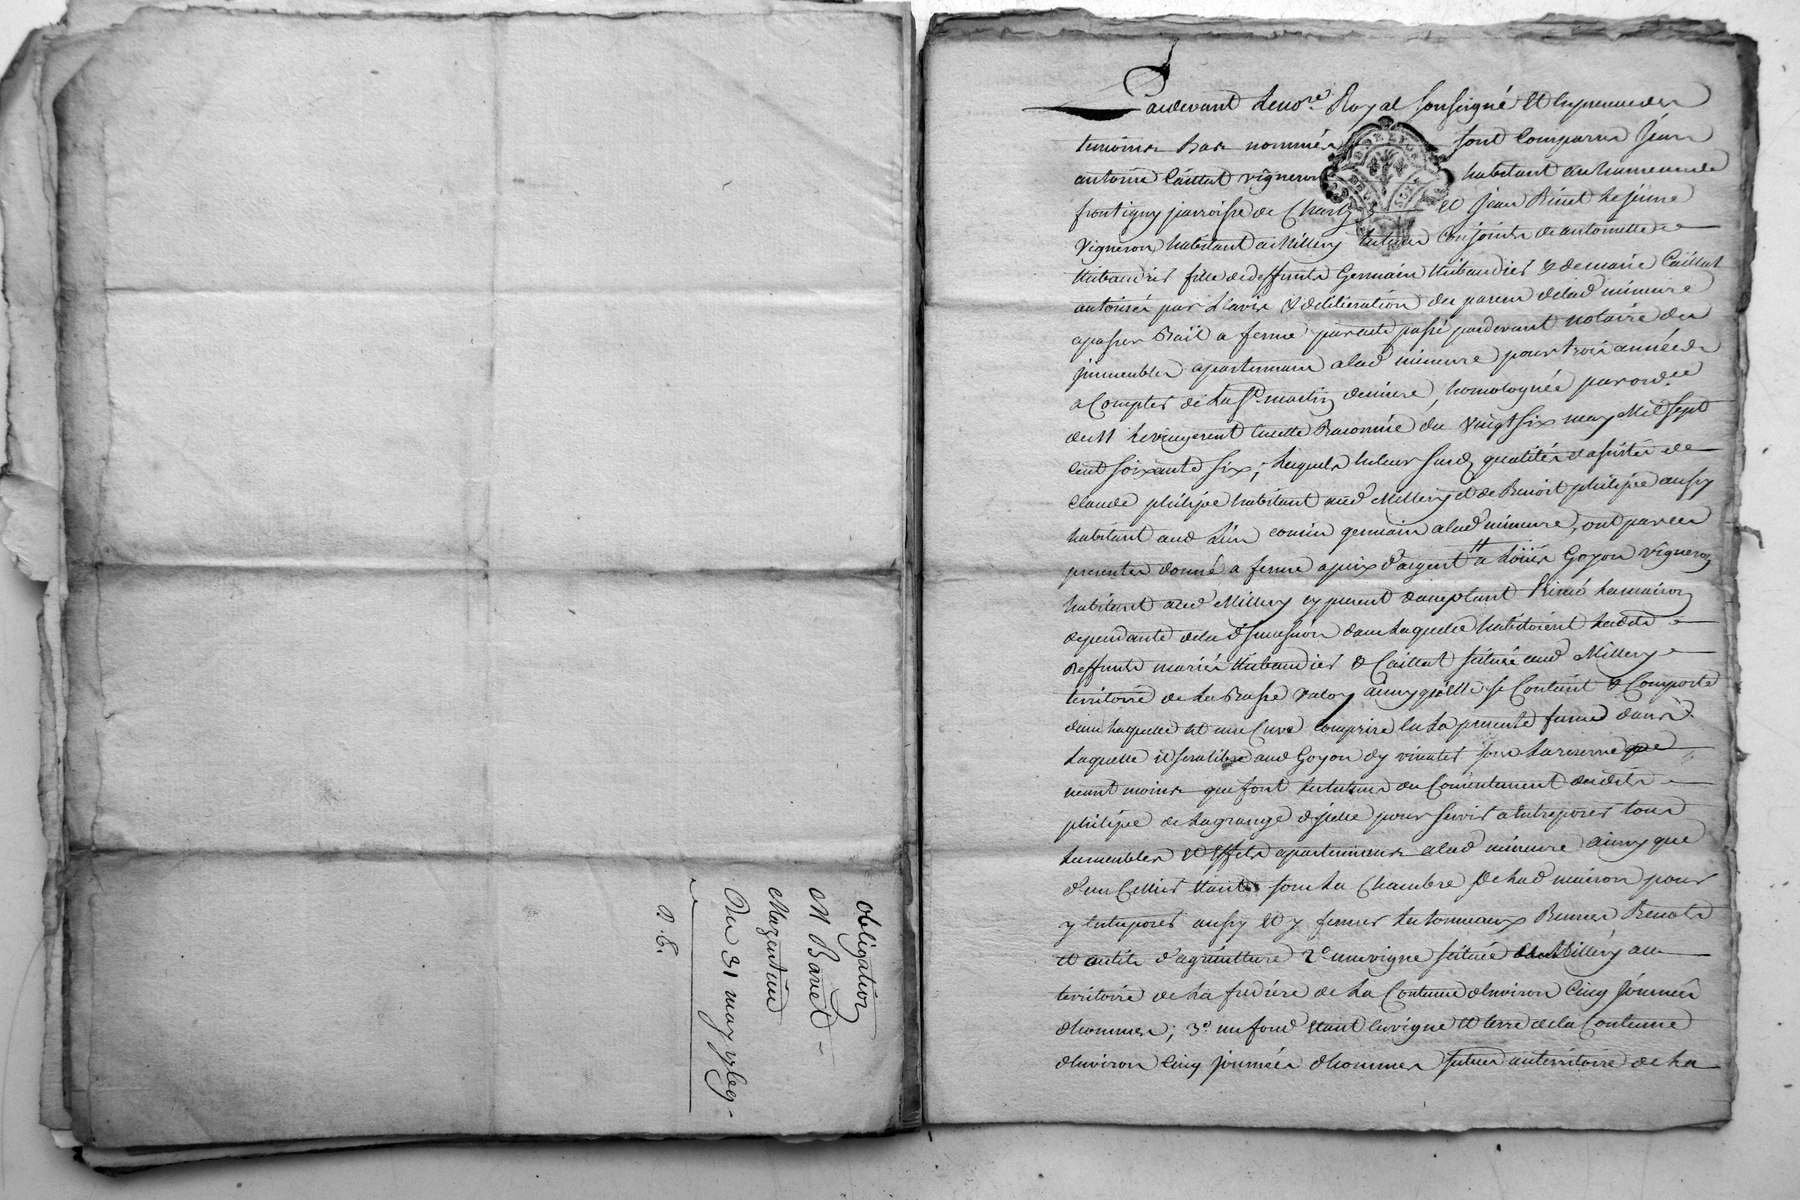 obligation
M Banet
Mazuyard
Du 31 may
D. E.
Pardevant le no.re Royal soussigné et en presence des
temoins bas nommés sont comparus Jean
antoine Caillat vigneron habitant au hameau de
frontigny parroisse de Charly et Jean Binet le jeune
vigneron habitant a Millery tuteurs conjoints de antoinette
thibaudier fille de deffunts Germain thibaudier & de marie Caillat
autorisés par l'avis & deliberation des parens de lad mineure
a passer Bail a ferme par acte passé pardevant notaire des
jmmeubles apartenans a lad mineure pour trois années
a compter de la St martin derniere, homologuée par ord.ce
de M le vingt six may mil sept
cent soixante six, lesquels tuteurs susd qualités et assistés de
claude philipe habitant aud Millery et de Benoit philipe aussy
habitant aud lieu cousin germain a lad mineure, ont par ces
presentes donné a ferme a prix d'argent a Loüis Goyon vigneron
habitant aud Millery cy present & aceptant Primo la maison
dependante de la succession dans laquelle habitoient lesdits
deffunts mariés thibaudier & Caillat située aud Millery
territoire de la Basse valoy ainsy qu'elle se contient & comporte
dans laquelle est une cuve comprise en la presente ferme dans
laquelle il sera libre aud Goyon dy vinater sous la reserve
neant moins que font les tuteurs du consentement desdits
philipe de la grange d'jcelle pour servir a entreposer tous
les meubles et effets apartenants a lad mineure ainsy que
d'un cellier etant sous la chambre de lad maison pour
y entreposer aussy et y fermer les tonneaux Bennes Benots
et outils d'agriculture 2.o une vigne située a Millery au
territoire de la fudiere de la contenue d'environ cinq journées
d'hommes; 3.o un fond etant en vigne et terre de la contenue
d'environ cinq journées d'hommes situés au territoire de la